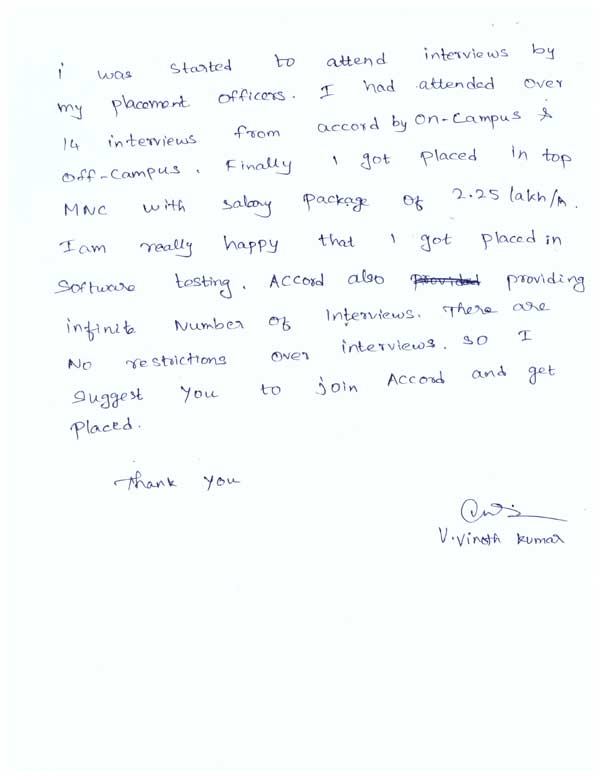 i was started to attend interviews by
my placement officers. I had attended over
14 interviews from accord by On-Campus &
Off-Campus. Finally I got placed in top
MNC with salary package of 2.25 lakh/A.
I am really happy that I got placed in
Software testing. Accord also provided providing
infinite Number of Interviews. There are
No restrictions over interviews. so I
Suggest You to join Accord and get
Placed.
Thank you
V.Vinoth Kumar